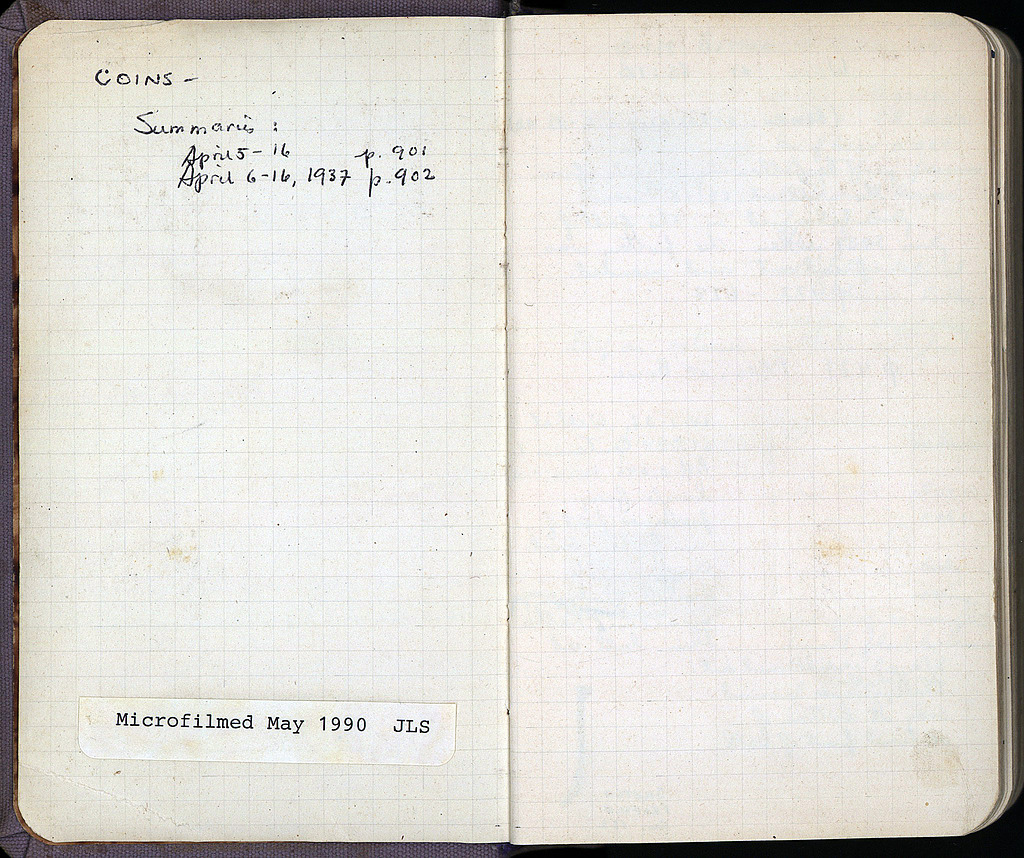 COINS -
Summaries :
April 5 - 16 p. 901
April 6-16, 1937 p. 902
Microfilmed May 1990 JLS